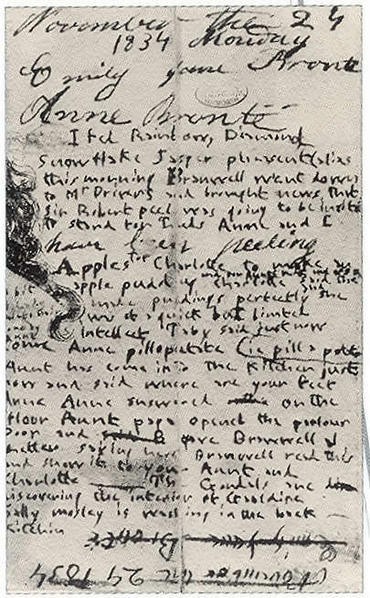 November the 24
1834 Monday
Emily Jane Brontë
Anne Brontë
I fed Rainbow, Diamond
Snowflake Jasper pheasent (alias
this morning Branwell went down
to Mr Drivers and brought news that
Sir Robert peel was going to be invited
to stand for Leeds Anne and I
have been peeling
Apples for Charlotte to make
apple pudding Charlotte said she
made puddings perfectly she
was of a quick but limted
intellect Taby said just now
come Anne pillopatate (ie pill a potato
Aunt has come into the Kitchen just
now and said where are your feet
Anne Anne answered on the
floor Aunt papa opened the parlour
Door and gave Branwell a
letter saying here Branwell read this
and show it to your Aunt and
Charlotte The Gondals are
discovering the interior of Gaaldine
Sally mosley is washing in the back
Kitchin
November the 24 1834